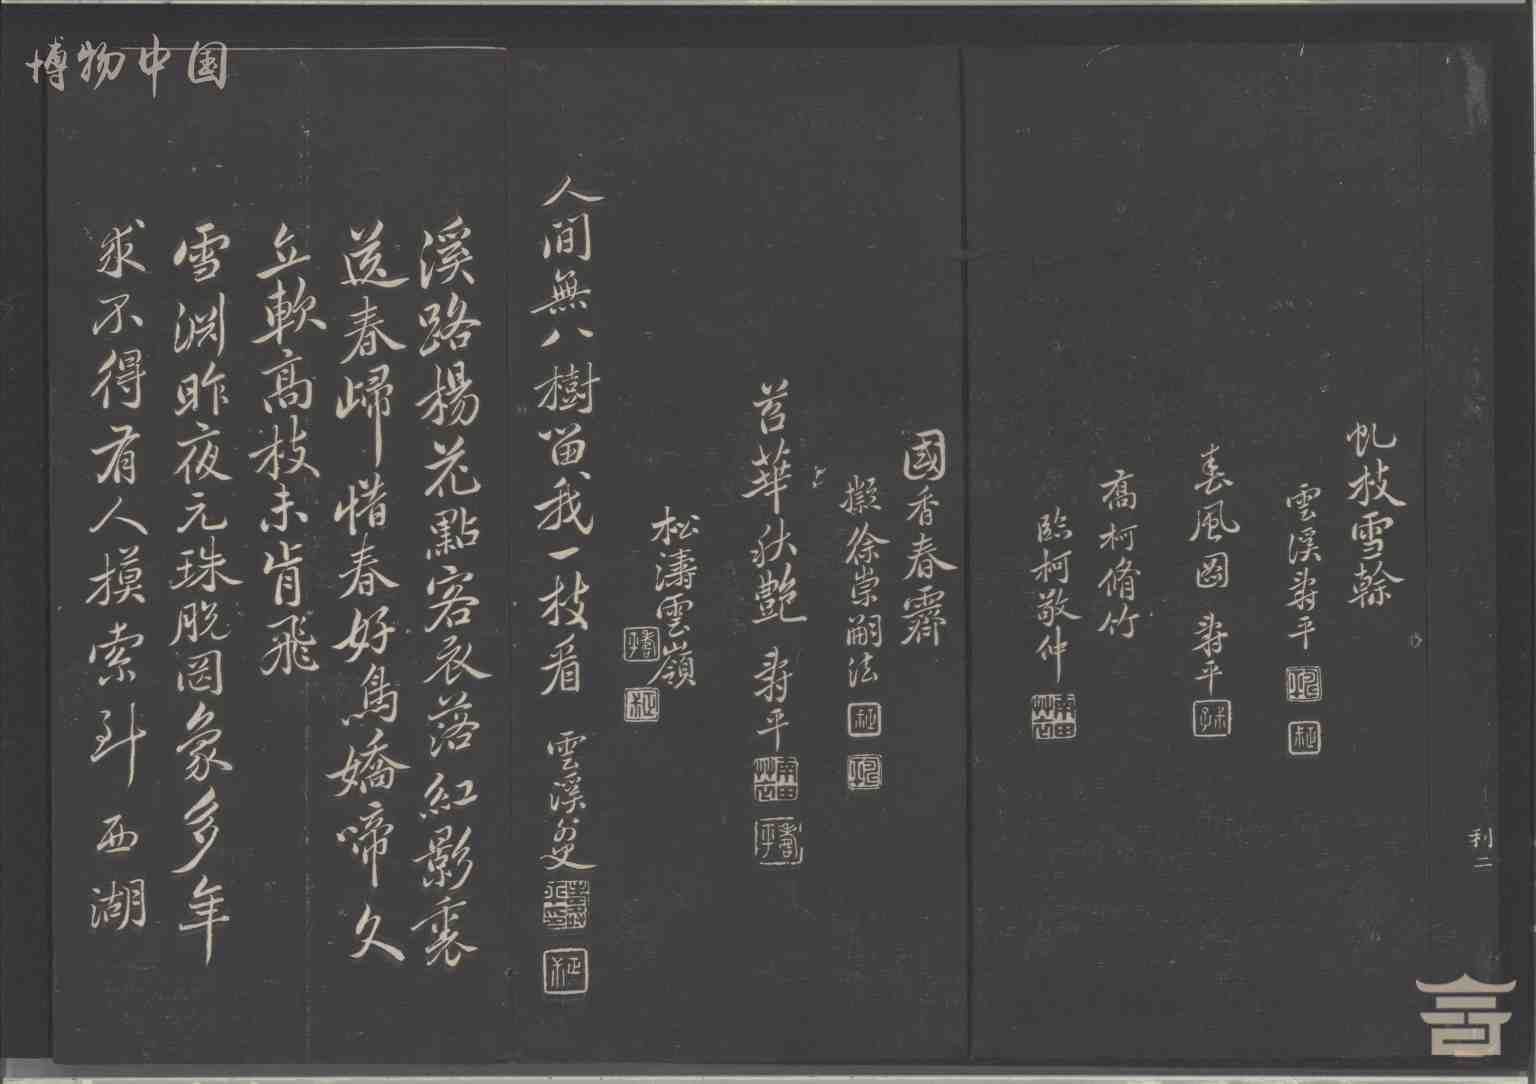 博物中国
利二
虬枝雪榦
雲溪壽平
春風圖 壽平
喬柯脩竹
臨柯敬仲
國香春霽
擬徐崇嗣法
苕華秋艶 壽平
松濤雲嶺
人間無八樹留我一枝看 雲溪
溪路楊花點客衣落紅影裏
送春歸惜春好鳥嬌啼久
立軟高枝未肯飛
雪淵昨夜元珠脫罔象多年
求不得有人摸索到西湖